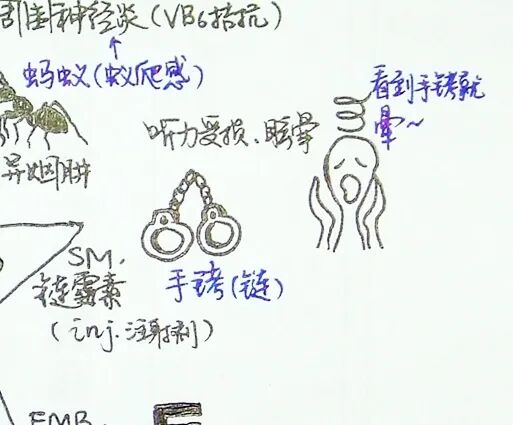 周围神经炎(VB6拮抗)
↑
蚂蚁(蚁爬感)
看到手铐就
晕~
听力受损、眩晕
异烟肼
SM.
链霉素
(inj.注射剂)
手铐(链)
EMB.
E